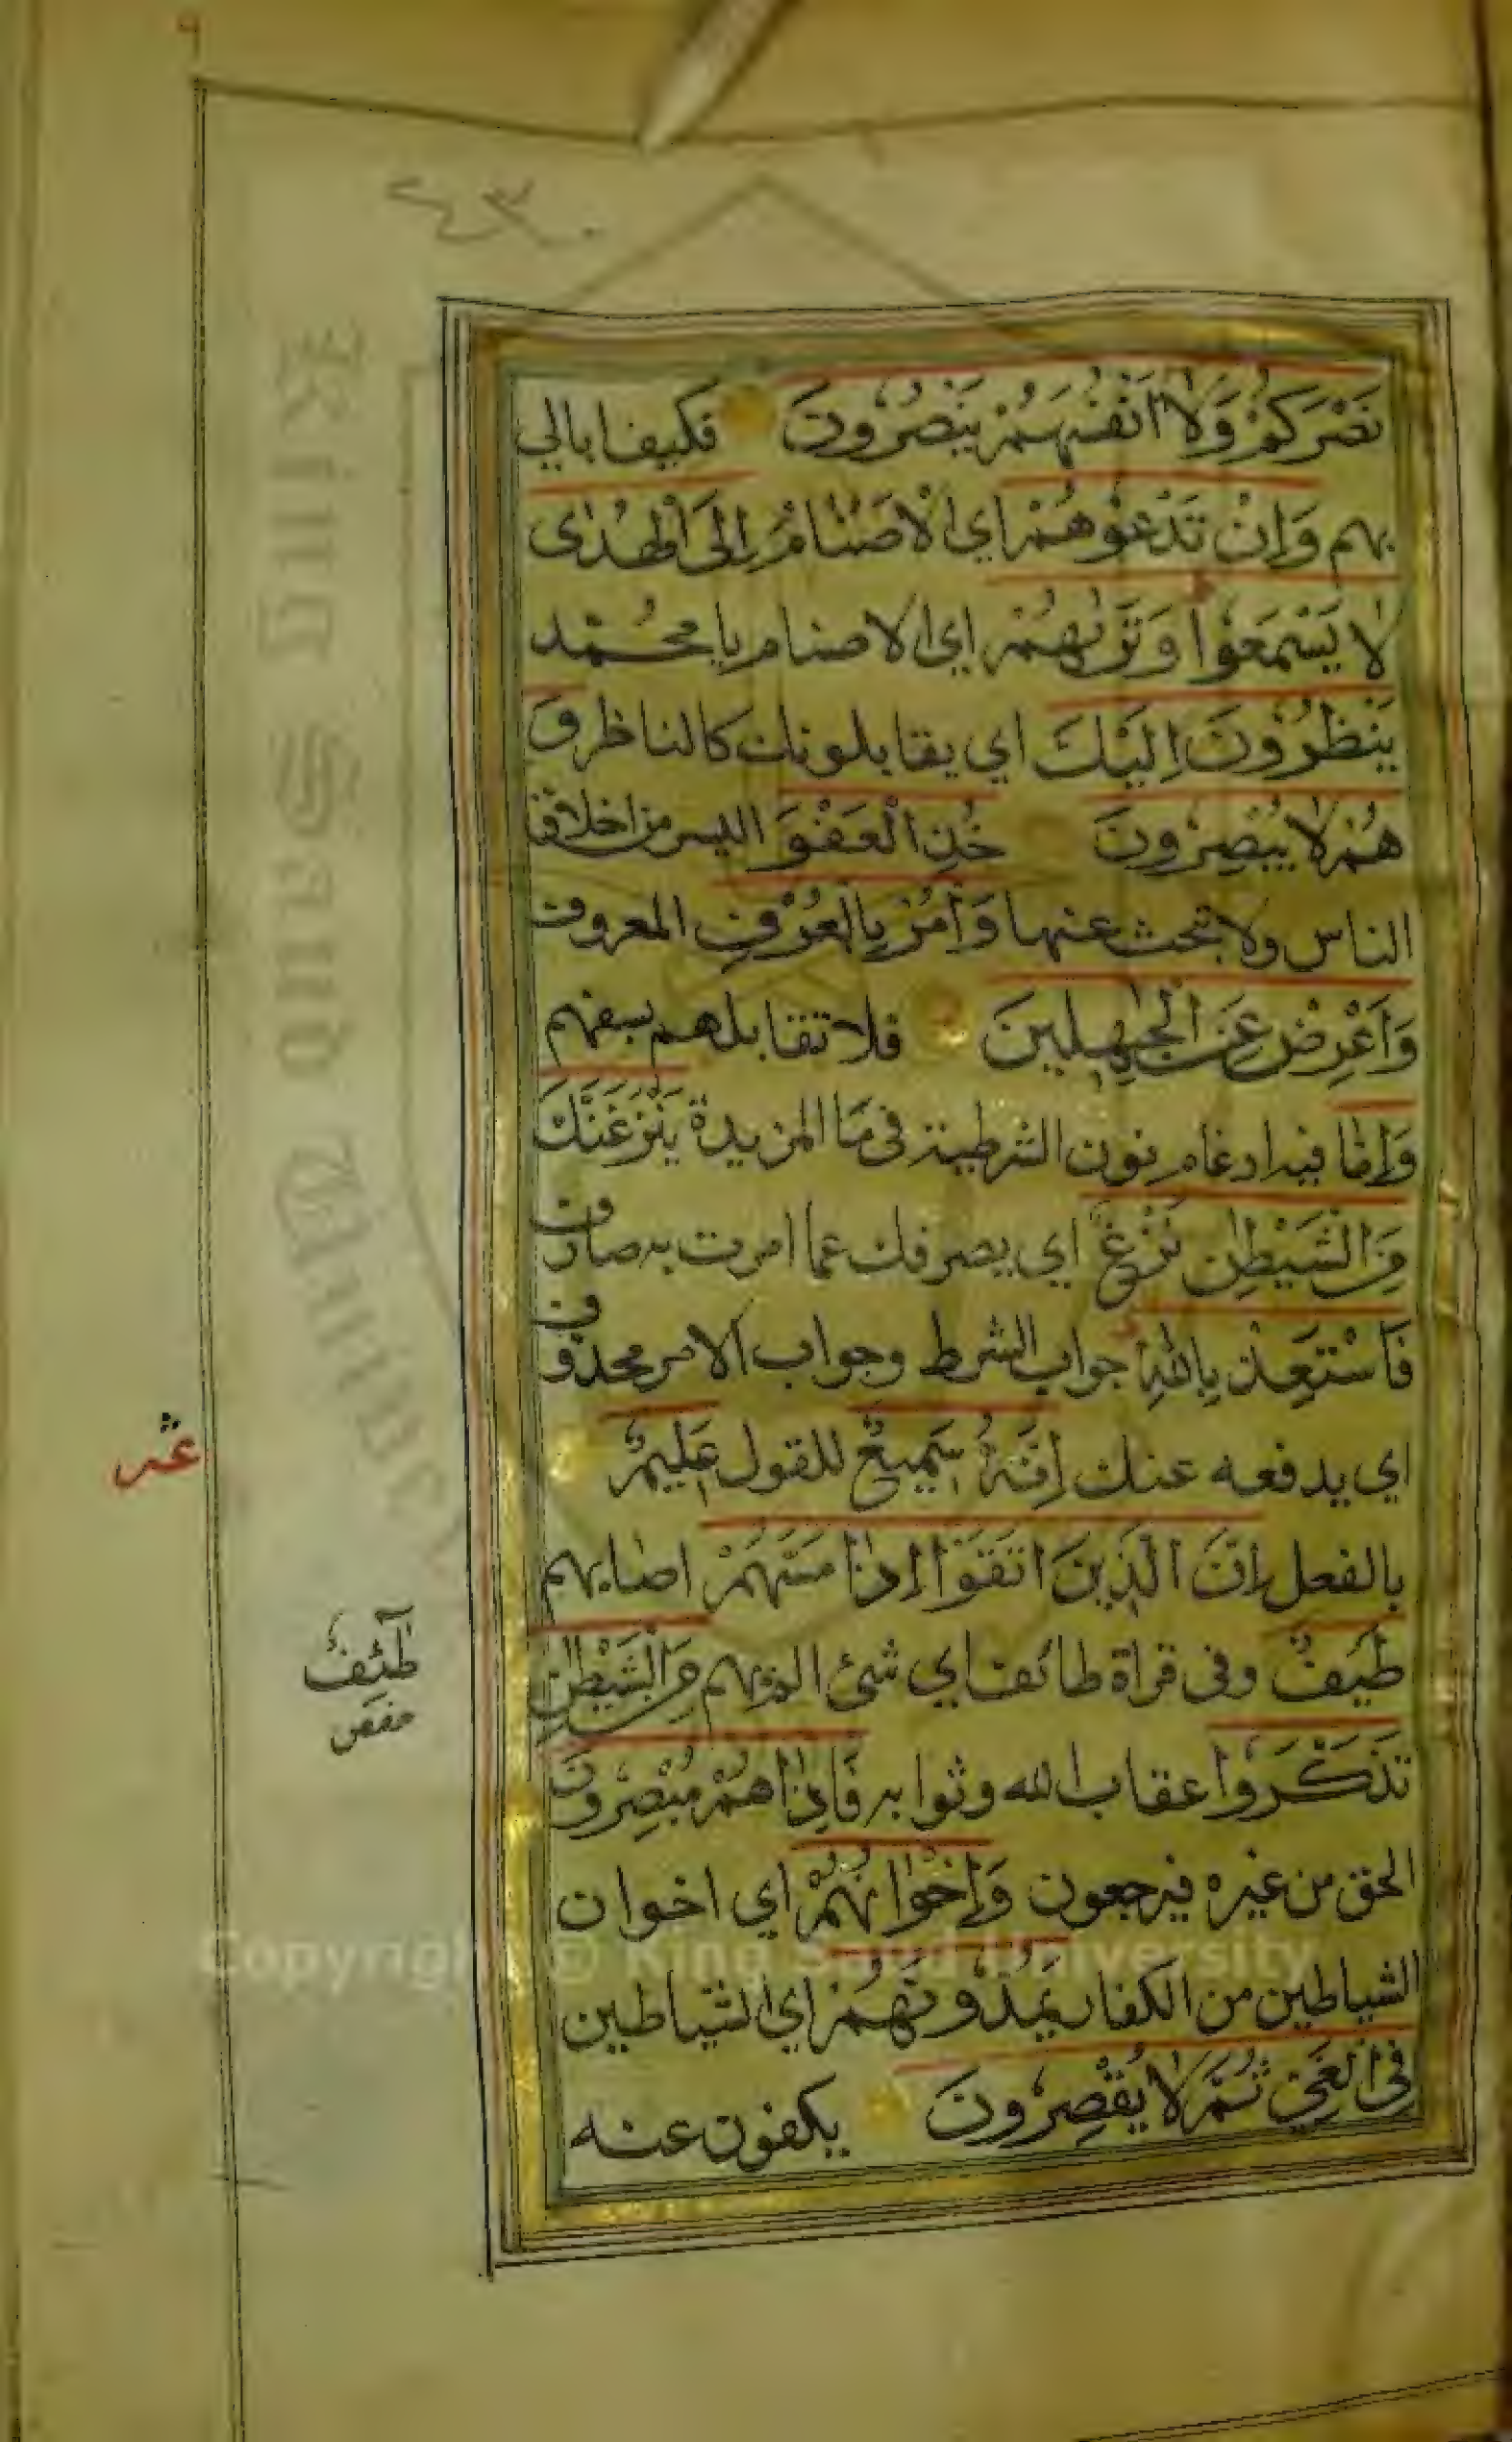 نَصْرَكُمْ وَلَا اَنْفُسَهُمْ يَنْصُرُونَ فكيف ابالي
بهم وَاِنْ تَدْعُوهُمْ اي الاصنام اِلَى الْهُدٰى
لَا يَسْمَعُوا وَتَرٰيهُمْ اي الاصنام يا محمد
يَنْظُرُونَ اِلَيْكَ اي يقابلونك كالناظر وَ
هُمْ لَا يُبْصِرُونَ خُذِ الْعَفْوَ اليسر من اخلاق
الناس ولا تبحث عنها وَأْمُرْ بِالْعُرْفِ المعروف
وَاَعْرِضْ عَنِ الْجٰهِلِينَ فلا تقابلهم بسفههم
وَاِمَّا فيه ادغام نون الشرطية في مَا المزيدة يَنْزَغَنَّكَ
مِنَ الشَّيْطٰنِ نَزْغٌ اي يصرفك عما امرت به صارف
فَاسْتَعِذْ بِاللّٰهِ جواب الشرط وجواب الامر محذوف
اي يدفعه عنك اِنَّهُ سَمِيعٌ للقول عَلِيمٌ
بالفعل اِنَّ الَّذِينَ اتَّقَوْا اِذَا مَسَّهُمْ اصابهم
طَيْفٌ وفي قراة طائف اي شئ الم بهم مِنَ الشَّيْطٰنِ
تَذَكَّرُوا عقاب الله وثوابه فَاِذَا هُمْ مُبْصِرُونَ
الحق من غيره فيرجعون وَاِخْوَانُهُمْ اي اخوان
الشياطين من الكفار يَمُدُّونَهُمْ اي الشياطين
فِي الْغَيِّ ثُمَّ لَا يُقْصِرُونَ يكفون عنه
عشر
طٰٓئِفٌ
حفص
King Saud University
Copyright © King Saud University